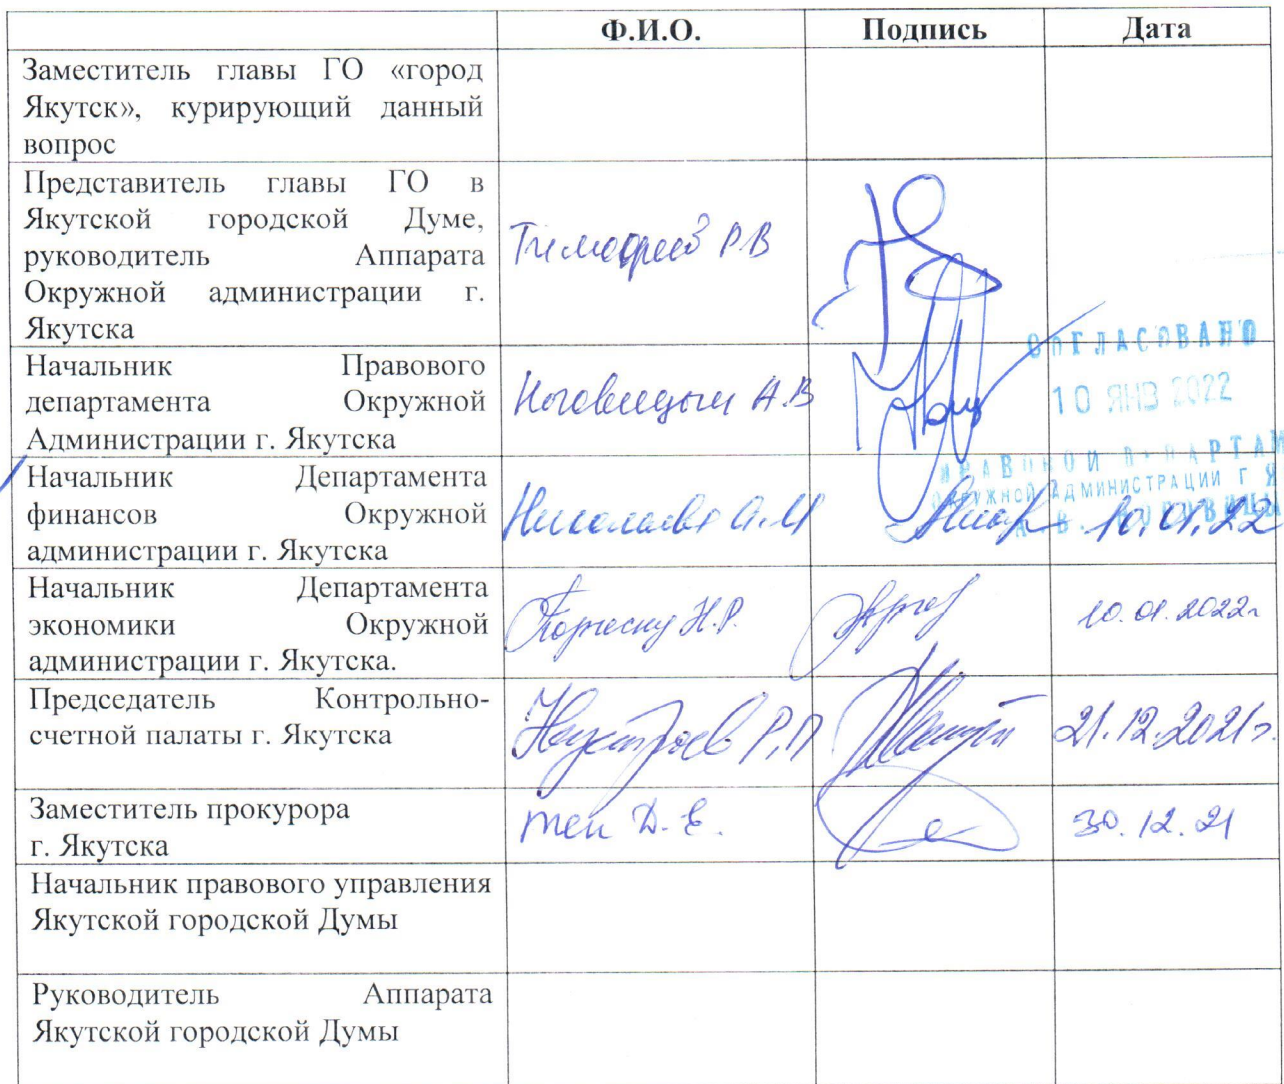 Ф.И.О. Подпись Дата
Заместитель главы ГО «город
Якутск», курирующий данный
вопрос
Представитель главы ГО в
Якутской городской Думе,
руководитель Аппарата
Окружной администрации г.
Якутска
Тимофеев Р.В
Начальник Правового
департамента Окружной
Администрации г. Якутска
Ноговицын А.В
СОГЛАСОВАНО
10 ЯНВ 2022
ПРАВОВОЙ ДЕПАРТАМ
ОКРУЖНОЙ АДМИНИСТРАЦИИ Г Я
А. В. НОГОВИЦЫ
Начальник Департамента
финансов Окружной
администрации г. Якутска
Николаева А.М 10.01.22
Начальник Департамента
экономики Окружной
администрации г. Якутска.
Н.Р. 10.01.2022г
Председатель Контрольно-
счетной палаты г. Якутска
Нустроев Р.П 21.12.2021г.
Заместитель прокурора
г. Якутска
Тен Д.Е. 30.12.21
Начальник правового управления
Якутской городской Думы
Руководитель Аппарата
Якутской городской Думы